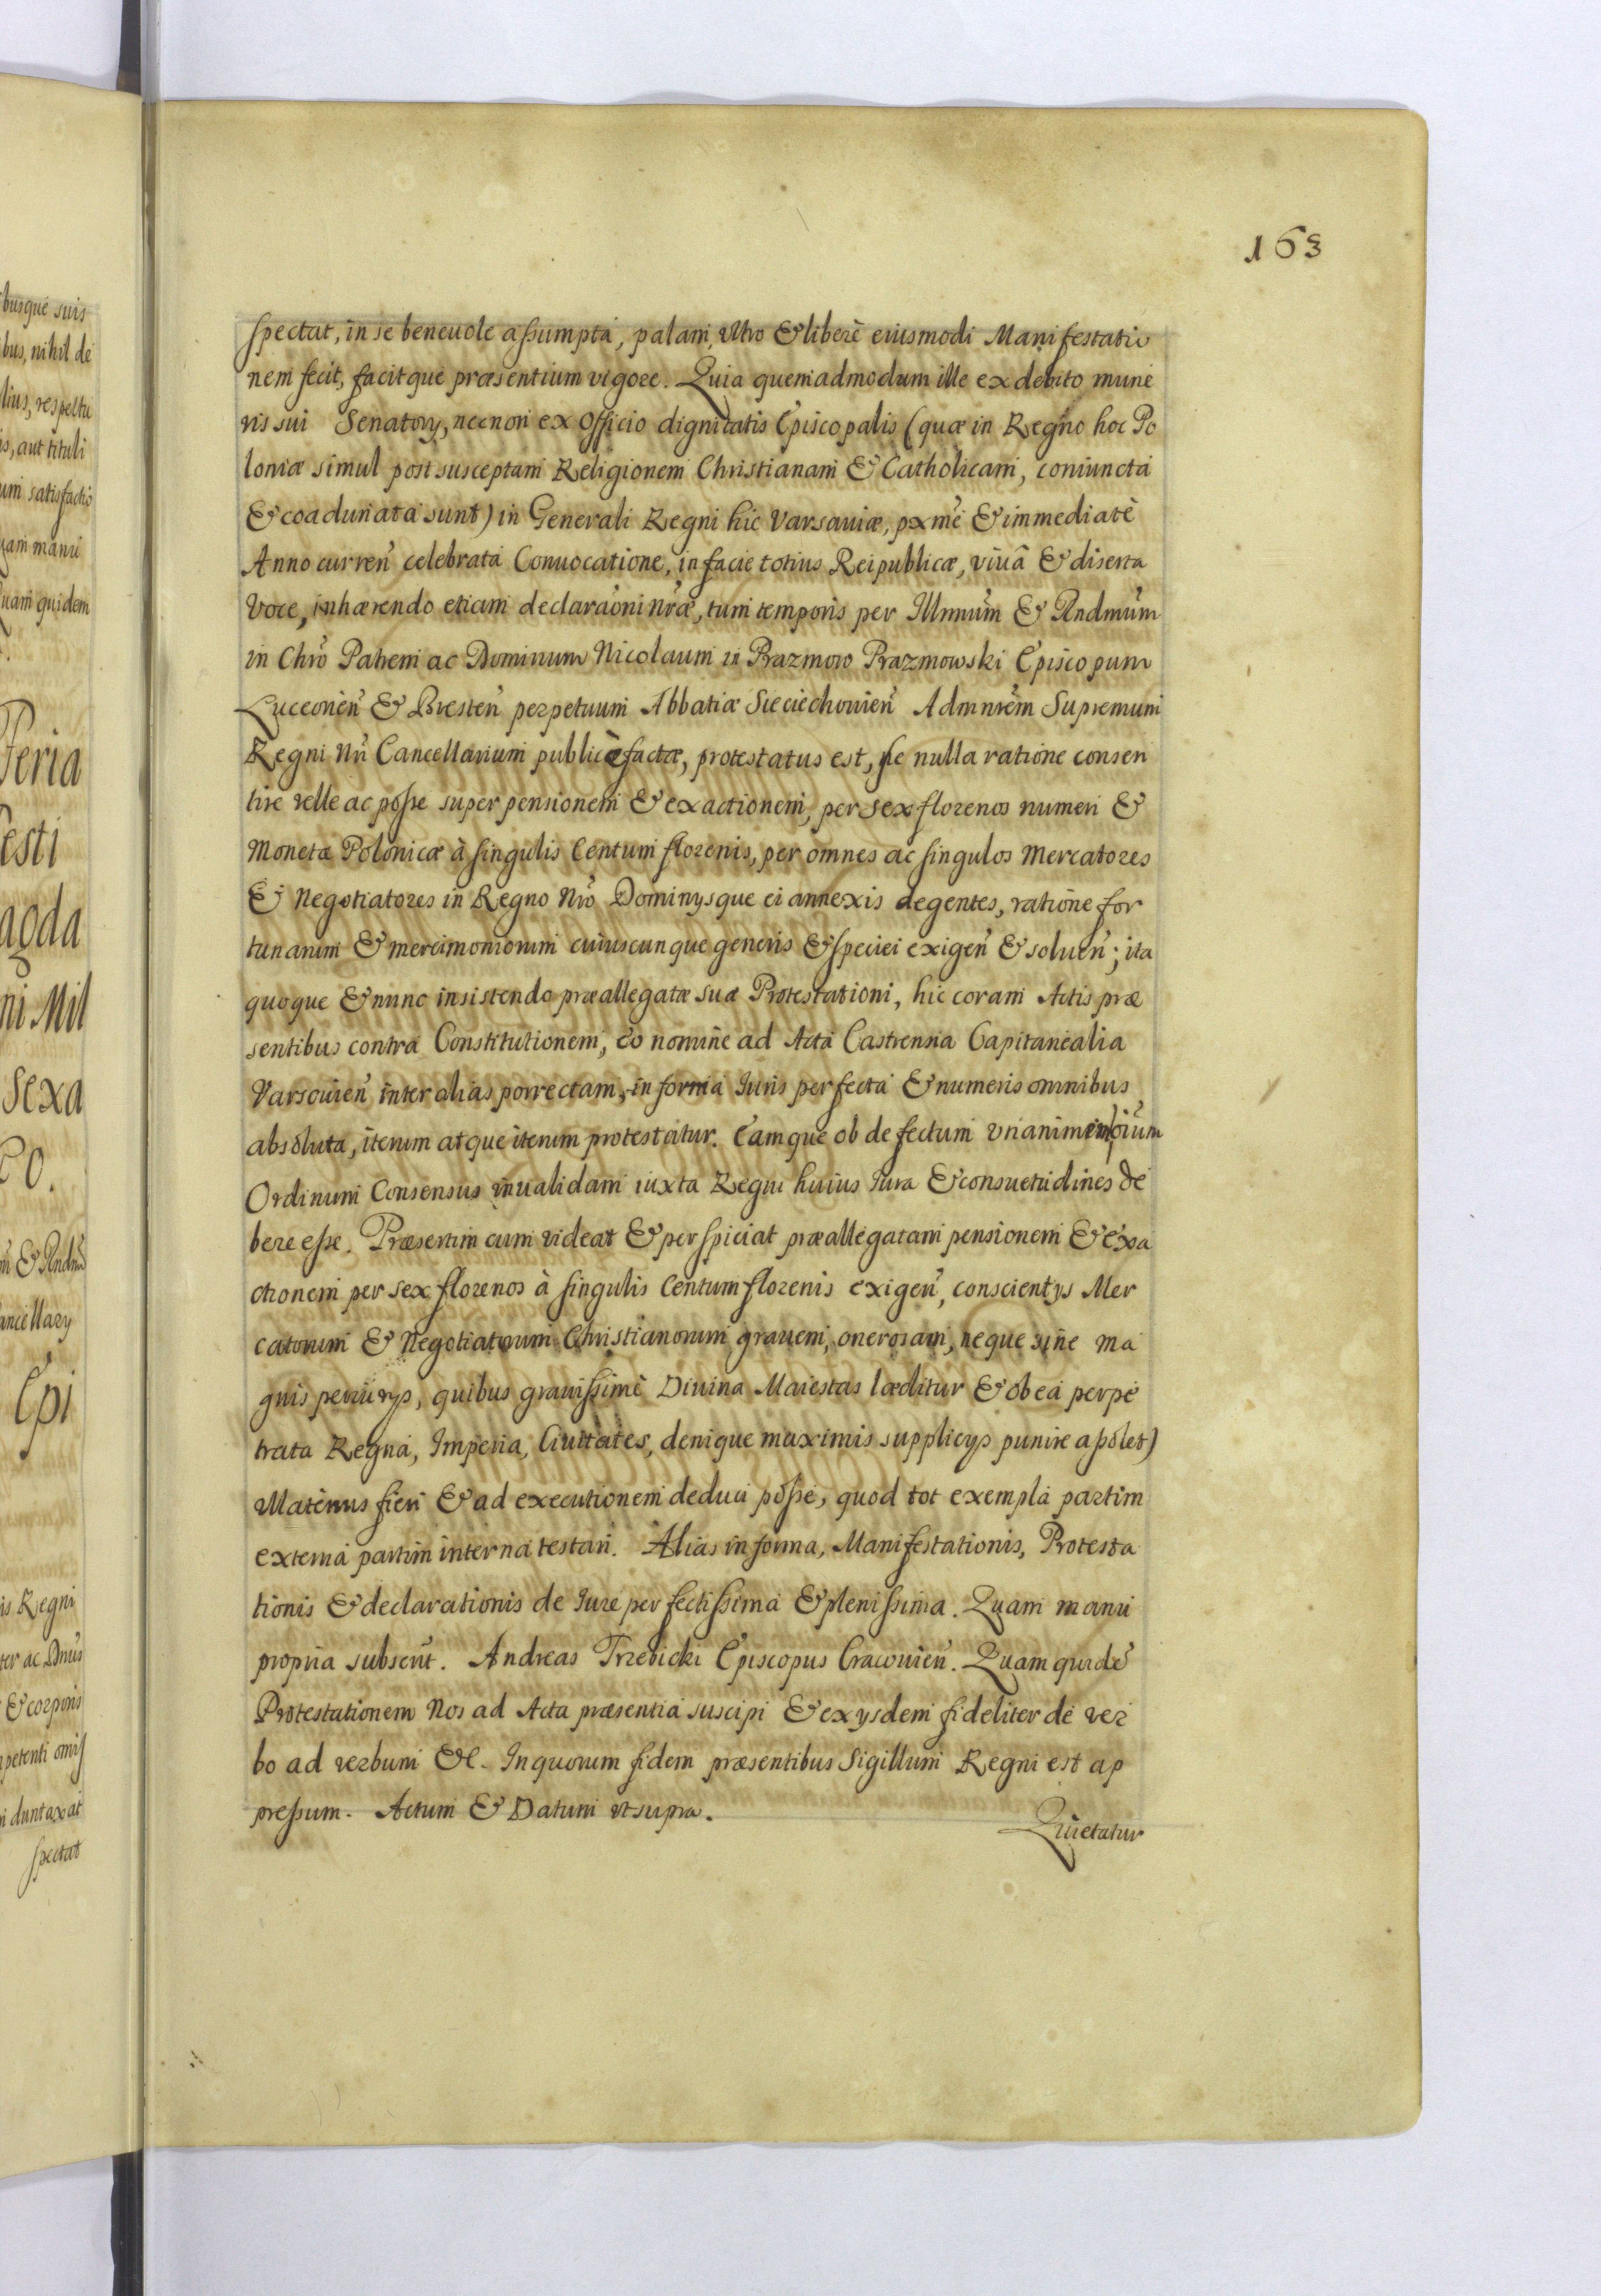 163
spectat, in se beneuole assumpta, palam, vltro & liberè eiusmodi Manifestatio
nem fecit, facitque præsentium vigore. Quia quemadmodum ille ex debito mune
ris sui Senatorÿ, necnon ex Officio dignitatis Episcopalis (quæ in Regno hoc Po
loniæ simul post susceptam Religionem Christianam & Catholicam, coniuncta
& coadunata sunt) in Generali Regni hic Varsauiæ, pxmè & immediatè
Anno curren̄ celebrata Conuocatione, in facie totius Reipublicæ, viuâ & diserta
Voce, inhærendo etiam declarãoni nr̃æ, tum temporis per Illmum̃ & Rndmum̃
in Chrõ Patrem ac Dominum Nicolaum in Prazmow Prazmowski Episcopum
Luceorien̄ & Bresten̄ perpetuum Abbatiæ Sieciechouien̄ Admnrem̃ Supremum
Regni Nri̇̃ Cancellarium publicè factæ, protestatus est, se nulla ratione consen
tire velle ac posse super pensionem & exactionem, per sex florenos numeri &
Monetæ Polonicæ à singulis Centum florenis, per omnes ac singulos Mercatores
& Negotiatores in Regno Nrõ Dominÿsque ei annexis degentes, ratione for
tunarum & mercimoniorum cuiuscunque generis & speciei exigen̄ & soluen̄; ita
quoque & nunc insistendo præallegatæ suæ Protestationi, hic coram Actis præ
sentibus contra Constitutionem, eo nomine ad Acta Castrensia Capitanealia
Varsouien̄ inter alias porrectam, in forma Iuris perfecta & numeris omnibus
absoluta, iterum atque iterum protestatur. Eamque ob defectum vnanimis oium̃
Ordinum Consensus inualidam iuxta Regni huius Iura & consuetudines de
bere esse. Præsertim cum videat & perspiciat præallegatam pensionem & exa
ctionem per sex florenos à singulis Centum florenis exigen̄, conscientÿs Mer
catorum & Negotiatorum Christianorum grauem, onerosam, neque sine ma
gnis periurÿs, quibus grauissimè Diuina Maiestas læditur & ob ea perpe
trata Regna, Imperia, Ciuitates, denique maximis supplicÿs punire assolet)
vllatenus fieri & ad executionem deduci posse, quod tot exempla partim
externa partim interna testari. Alias in forma, Manifestationis, Protesta
tionis & declarationis de Iure perfectissima & plenissima. Quam manu
propria subscrit̃. Andreas Trzebicki Episcopus Cracouien̄. Quam quidẽ
Protestationem Nos ad Acta præsentia suscipi & ex ÿsdem fideliter de ver
bo ad verbum &c. In quorum fidem præsentibus Sigillum Regni est ap
pressum. Actum & Datum vt supra.
Quietatur
busque suis
bus, nihil de
is, aut tituli
um satisfactio
uam manu
uam quidem
Feria
esti
agda
ni Mil
Sexa
Epi
is Regni
& corporis
duntaxat
spectat